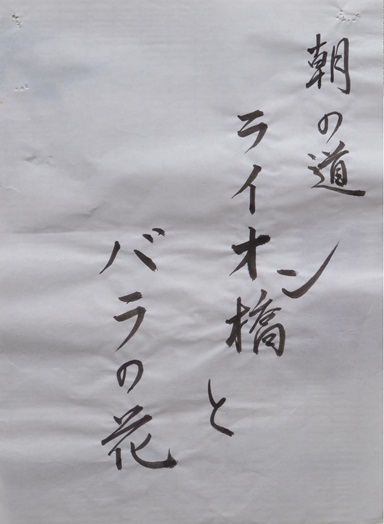 朝の道
ライオン橋と
バラの花